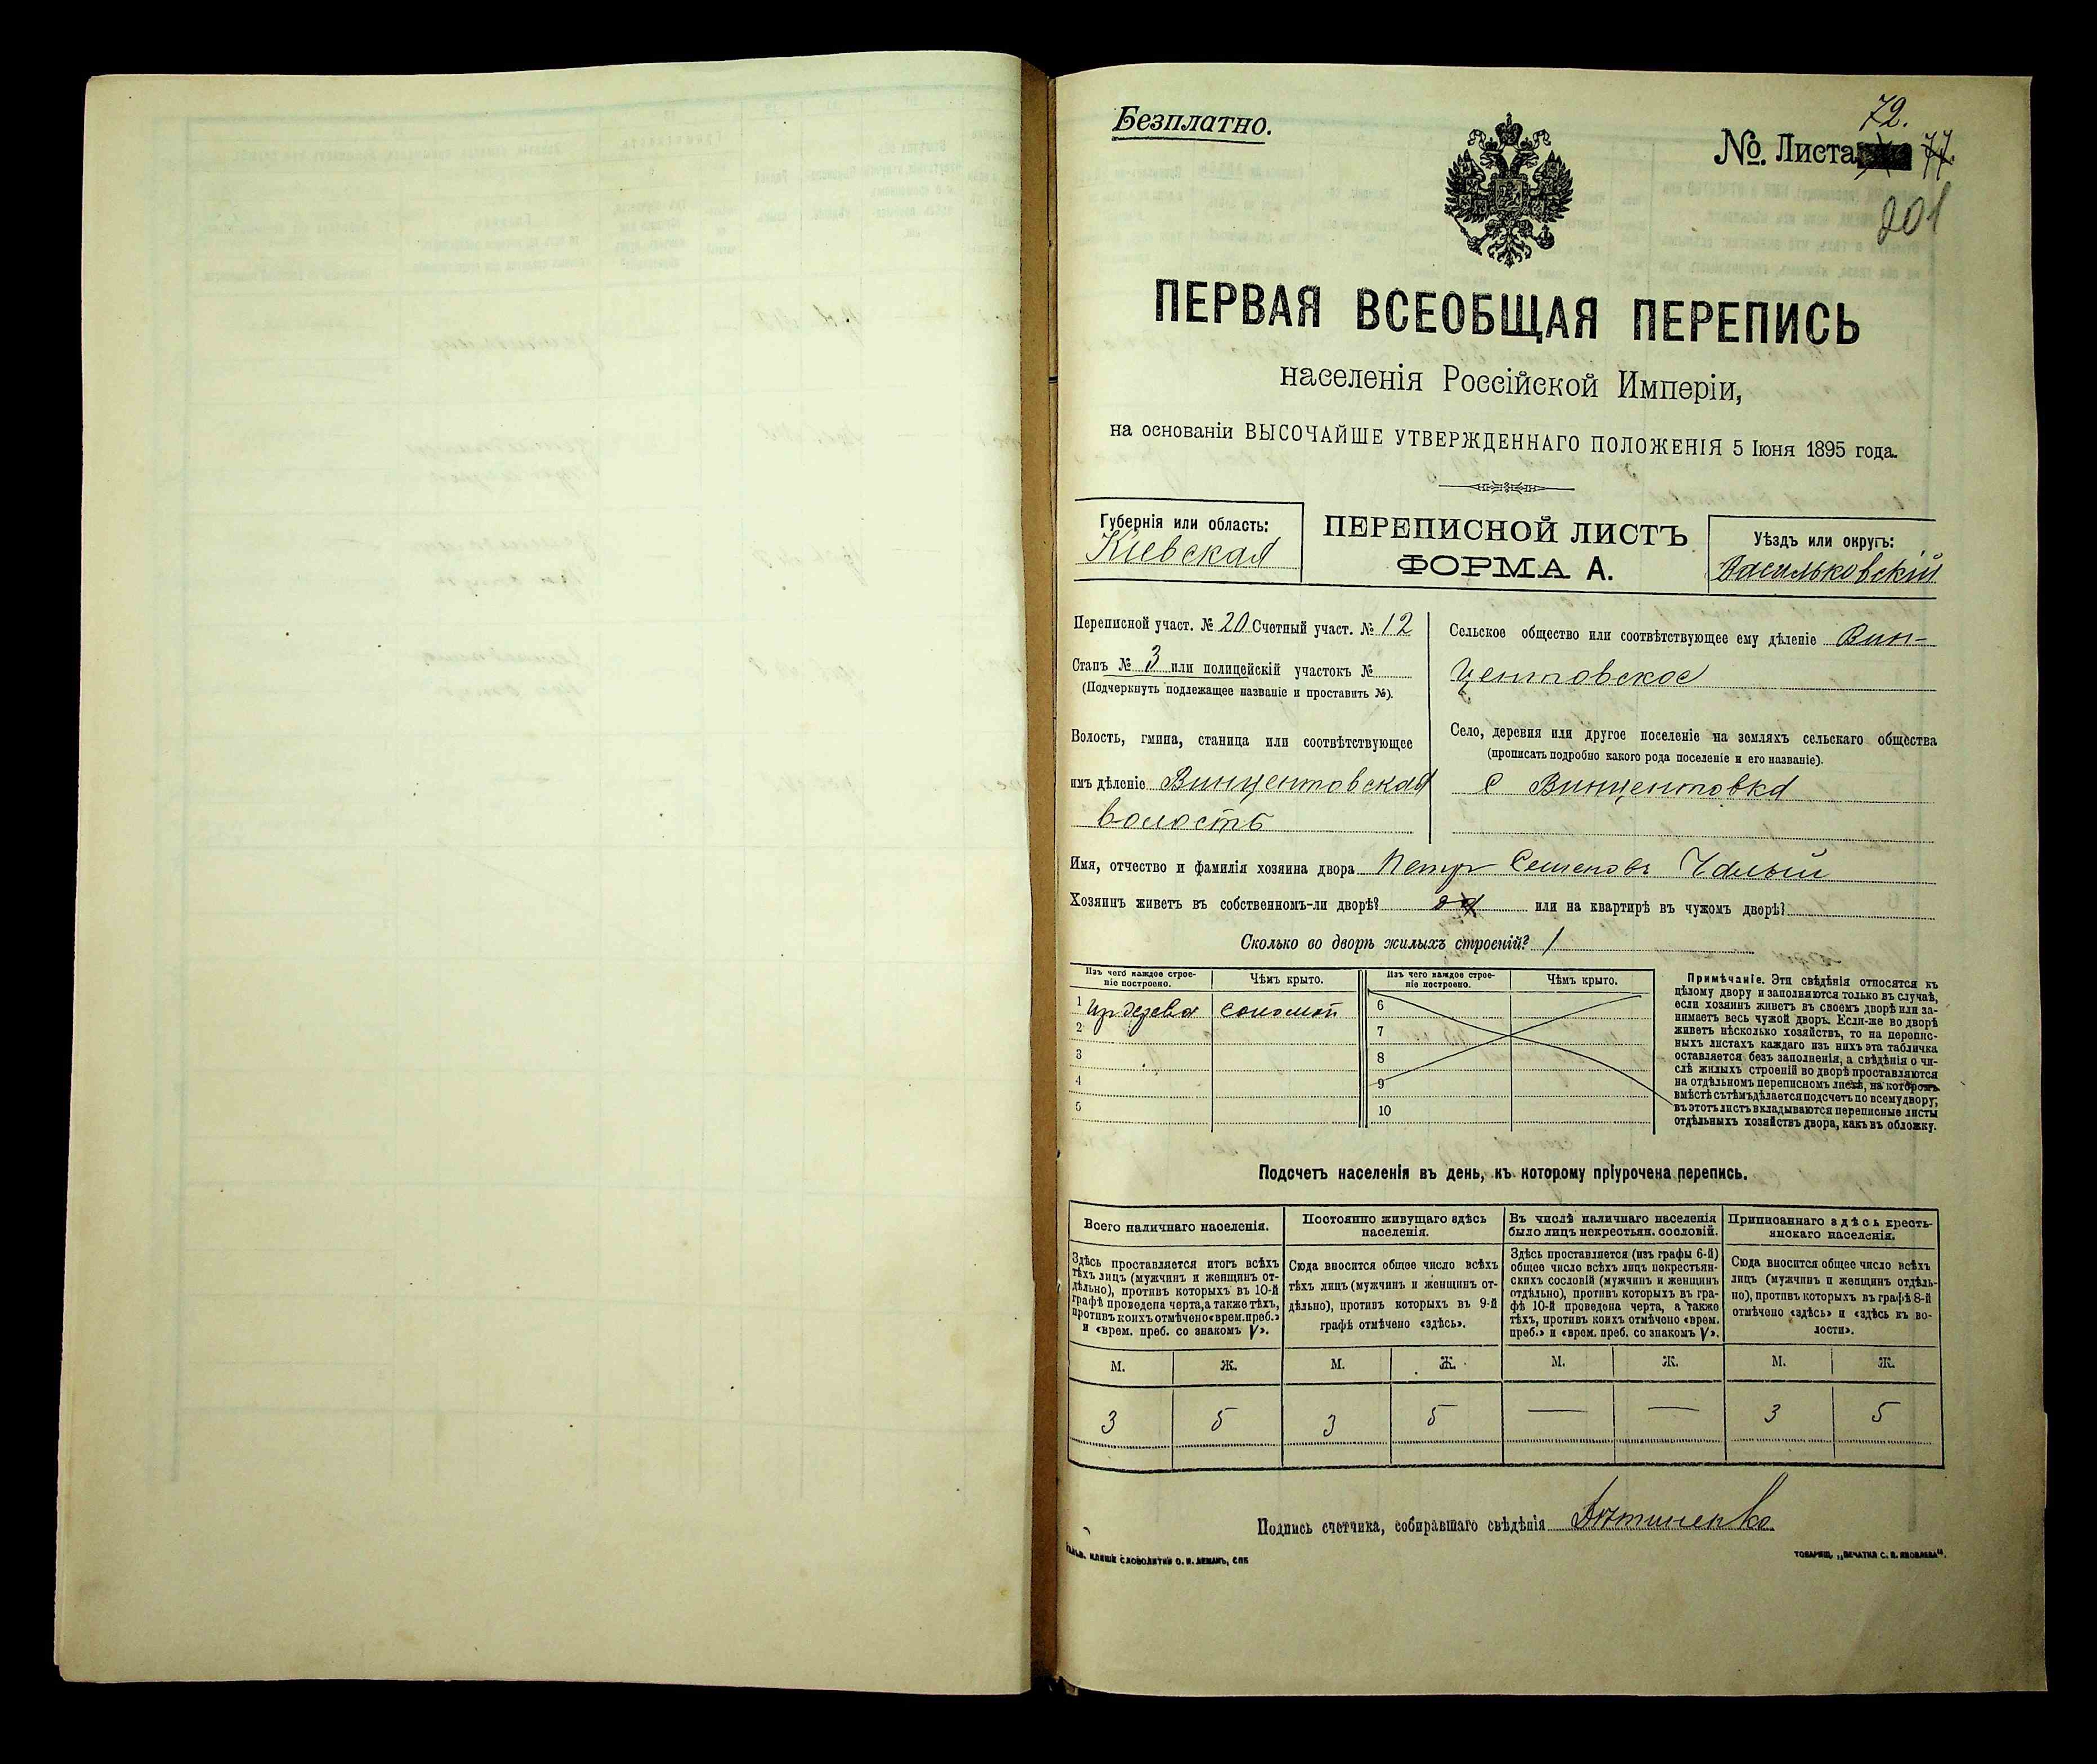 Безплатно.
72.
№. Листа 77.
201
ПЕРВАЯ ВСЕОБЩАЯ ПЕРЕПИСЬ
населенія Россійской Имперіи,
на основаніи ВЫСОЧАЙШЕ УТВЕРЖДЕННАГО ПОЛОЖЕНІЯ 5 Іюня 1895 года.
Губернія или область:
Кіевская
ПЕРЕПИСНОЙ ЛИСТЪ
ФОРМА А.
Уѣздъ или округъ:
Васильковскій
Переписной участ. № 20 Счетный участ. № 12
Станъ № 3 или полицейскій участокъ №
(Подчеркнуть подлежащее названіе и проставить №).
Волость, гмина, станица или соотвѣтствующее
имъ дѣленіе Винцентовская
волость
Сельское общество или соотвѣтствующее ему дѣленіе Вин-
центовское
Село, деревня или другое поселеніе на земляхъ сельскаго общества
(прописать подробно какого рода поселеніе и его названіе).
с Винцентовка
Имя, отчество и фамилія хозяина двора Петр Семеновъ Чалый
Хозяинъ живетъ въ собственномъ-ли дворѣ? да или на квартирѣ въ чужомъ дворѣ?
Сколько во дворѣ жилыхъ строеній? 1
Изъ чего каждое строе-
ніе построено.
Чѣмъ крыто.
Изъ чего каждое строе-
ніе построено.
Чѣмъ крыто.
1 Изъ дерева соломой 6
2 7
3 8
4 9
5 10
Примѣчаніе. Эти свѣдѣнія относятся къ
цѣлому двору и заполняются только въ случаѣ,
если хозяинъ живетъ въ своемъ дворѣ или за-
нимаетъ весь чужой дворъ. Если-же во дворѣ
живетъ нѣсколько хозяйствъ, то на перепис-
ныхъ листахъ каждаго изъ нихъ эта табличка
оставляется безъ заполненія, а свѣдѣнія о чи-
слѣ жилыхъ строеній во дворѣ проставляются
на отдѣльномъ переписномъ листѣ, на которомъ
вмѣстѣ съ тѣмъ дѣлается подсчетъ по всему двору;
въ этотъ листъ вкладываются переписные листы
отдѣльныхъ хозяйствъ двора, какъ въ обложку.
Подсчетъ населенія въ день, къ которому пріурочена перепись.
Всего наличнаго населенія.
Здѣсь проставляется итогъ всѣхъ
тѣхъ лицъ (мужчинъ и женщинъ от-
дѣльно), противъ которыхъ въ 10-й
графѣ проведена черта, а также тѣхъ,
противъ коихъ отмѣчено «врем. преб.»
и «врем. преб. со знакомъ V».
Постоянно живущаго здѣсь
населенія.
Сюда вносится общее число всѣхъ
тѣхъ лицъ (мужчинъ и женщинъ от-
дѣльно), противъ которыхъ въ 9-й
графѣ отмѣчено «здѣсь».
Въ числѣ наличнаго населенія
было лицъ некрестьян. сословій.
Здѣсь проставляется (изъ графы 6-й)
общее число всѣхъ лицъ некрестьян-
скихъ сословій (мужчинъ и женщинъ
отдѣльно), противъ которыхъ въ гра-
фѣ 10-й проведена черта, а также
тѣхъ, противъ коихъ отмѣчено «врем.
преб.» и «врем. преб. со знакомъ V».
Приписаннаго здѣсь кресть-
янскаго населенія.
Сюда вносится общее число всѣхъ
лицъ (мужчинъ и женщинъ отдѣль-
но), противъ которыхъ въ графѣ 8-й
отмѣчено «здѣсь» и «здѣсь къ во-
лости».
М. Ж. М. Ж. М. Ж. М. Ж.
3 5 3 5 — — 3 5
Подпись счетчика, собиравшаго свѣдѣнія
СЛОВОЛИТНИ О. И. ЛЕМАНЪ, СПБ
ТОВАРИЩ. „ПЕЧАТНЯ С. П. ЯКОВЛЕВА".